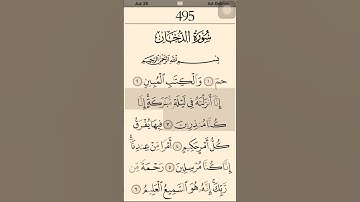 Juz 25
Ad-Dukhan
495
سُورَةُ الدُّخَانِ
بِسْمِ اللَّهِ الرَّحْمَٰنِ الرَّحِيمِ
حمٓ ١ وَالْكِتَٰبِ الْمُبِينِ ٢
إِنَّآ أَنزَلْنَٰهُ فِى لَيْلَةٍ مُّبَٰرَكَةٍ إِنَّا
كُنَّا مُنذِرِينَ ٣ فِيهَا يُفْرَقُ
كُلُّ أَمْرٍ حَكِيمٍ ٤ أَمْرًا مِّنْ عِندِنَآ
إِنَّا كُنَّا مُرْسِلِينَ ٥ رَحْمَةً مِّن
رَّبِّكَ إِنَّهُۥ هُوَ السَّمِيعُ الْعَلِيمُ ٦